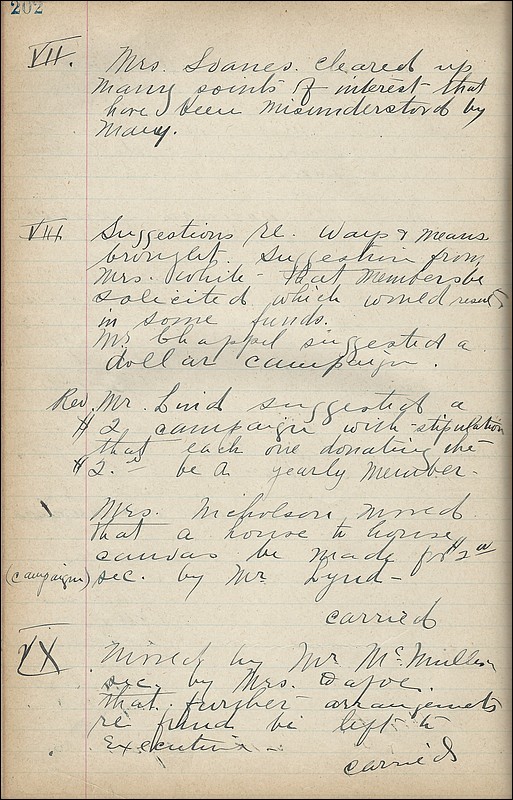 202
VII. Mrs. Soanes. cleared up
many points of interest that
have been misunderstood by
many.
VIII Suggestions re. Ways & means
brought. Suggestion from
Mrs. White - that members be
solicited which would result
in some funds.
Mr Chappel suggested a
dollar campaign.
Rev. Mr. Lind suggested a
$2 campaign with stipulation
that each one donating the
$2. be a yearly member-
Mrs. Nicholson moved
that a house to house
canvas be made for $2
(campaign) sec. by Mr. Lynd-
carried
IX Moved by Mr McMullen
sec. by Mrs. Dafoe.
that further arrangements
re fund be left to
Executive -
carried